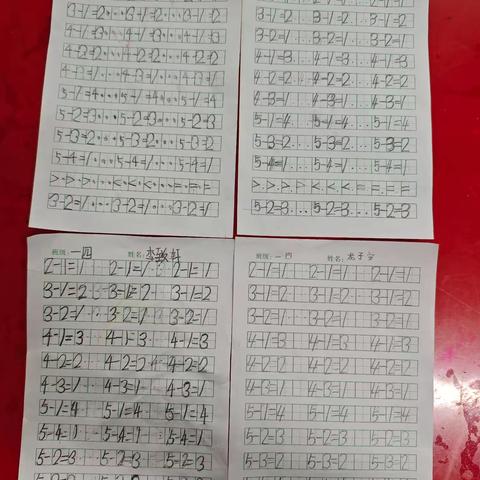 3-1=2...3-1=2...3-1=2
4-1=3...4-1=3...4-1=3
4-2=2...4-2=2...4-2=2
4-3=1...4-3=1...4-3=1
5-1=4...5-1=4...5-1=4
5-2=3...5-2=3...5-2=3
5-3=2...5-3=2...5-3=2
5-4=1...5-4=1...5-4=1
>.>.>...<.<.<...=.=.=
3-2=1...3-2=1...3-2=1
3-1=2...3-1=2...3-1=2
3-2=1...3-2=1...3-2=1
4-1=3...4-1=3...4-1=3
4-2=2...4-2=2...4-2=2
4-3=1...4-3=1...4-3=1
5-1=4...5-1=4...5-1=4
5-3=2...5-3=2...5-3=2
5-4=1...5-4=1...5-4=1
>.>.>...<.<.<...=.=.=
5-2=3...5-2=3...5-2=3
班级:一四 姓名:李致轩
2-1=1 2-1=1 2-1=1
3-1=2 3-1=2 3-1=2
3-2=1 3-2=1 3-2=1
4-1=3 4-1=3 4-1=3
4-2=2 4-2=2 4-2=2
4-3=1 4-3=1 4-3=1
5-1=4 5-1=4 5-1=4
5-4=1 5-4=1 5-4=1
5-2=3 5-2=3 5-2=3
班级:一四 姓名:
2-1=1 2-1=1 2-1=1
3-1=2 3-1=2 3-1=2
3-2=1 3-2=1 3-2=1
4-1=3 4-1=3 4-1=3
4-2=2 4-2=2 4-2=2
4-3=1 4-3=1 4-3=1
5-1=4 5-1=4 5-1=4
5-2=3 5-2=3 5-2=3
5-3=2 5-3=2 5-3=2